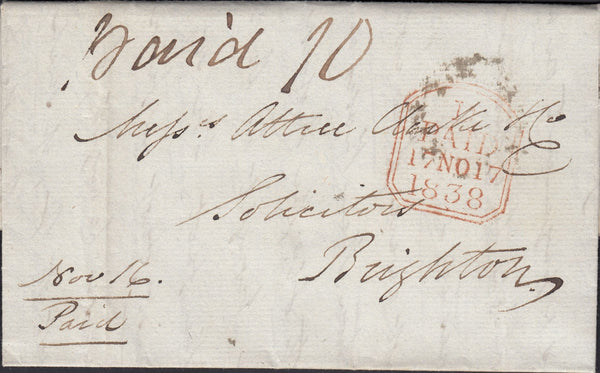 Paid 10
Messrs Attree Clarke & Co
Solicitors
Brighton
Nov 16.
Paid
L
PAID
17NO17
1838